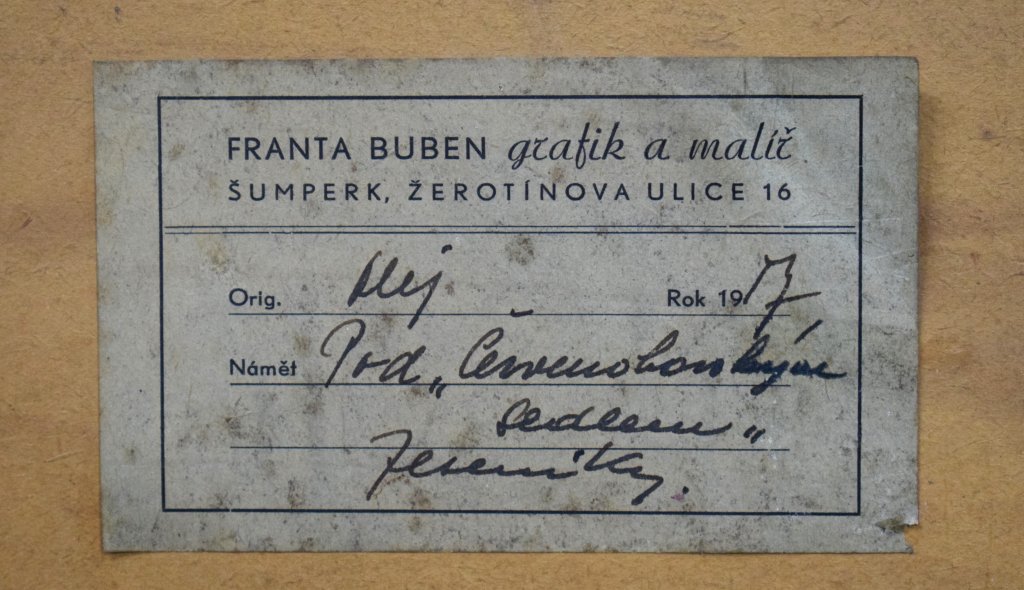 FRANTA BUBEN grafik a malíř
ŠUMPERK, ŽEROTÍNOVA ULICE 16
Orig. Olej Rok 19
Námět Pod „Červenohorským
sedlem„
Jeseníky.